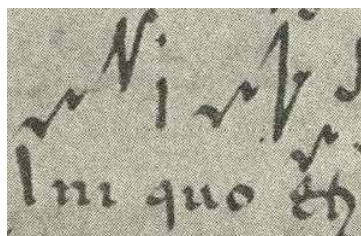 Ini quo